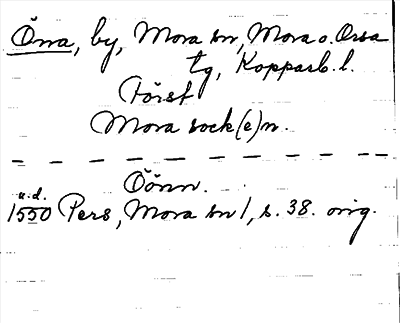 Öna, by, Mora sn, Mora o. Orsa
tg, Kopparb. l.
Först
Mora sock(e)n.
Öönn.
u.d.
1550 Pers, Mora sn 1, s. 38. orig.